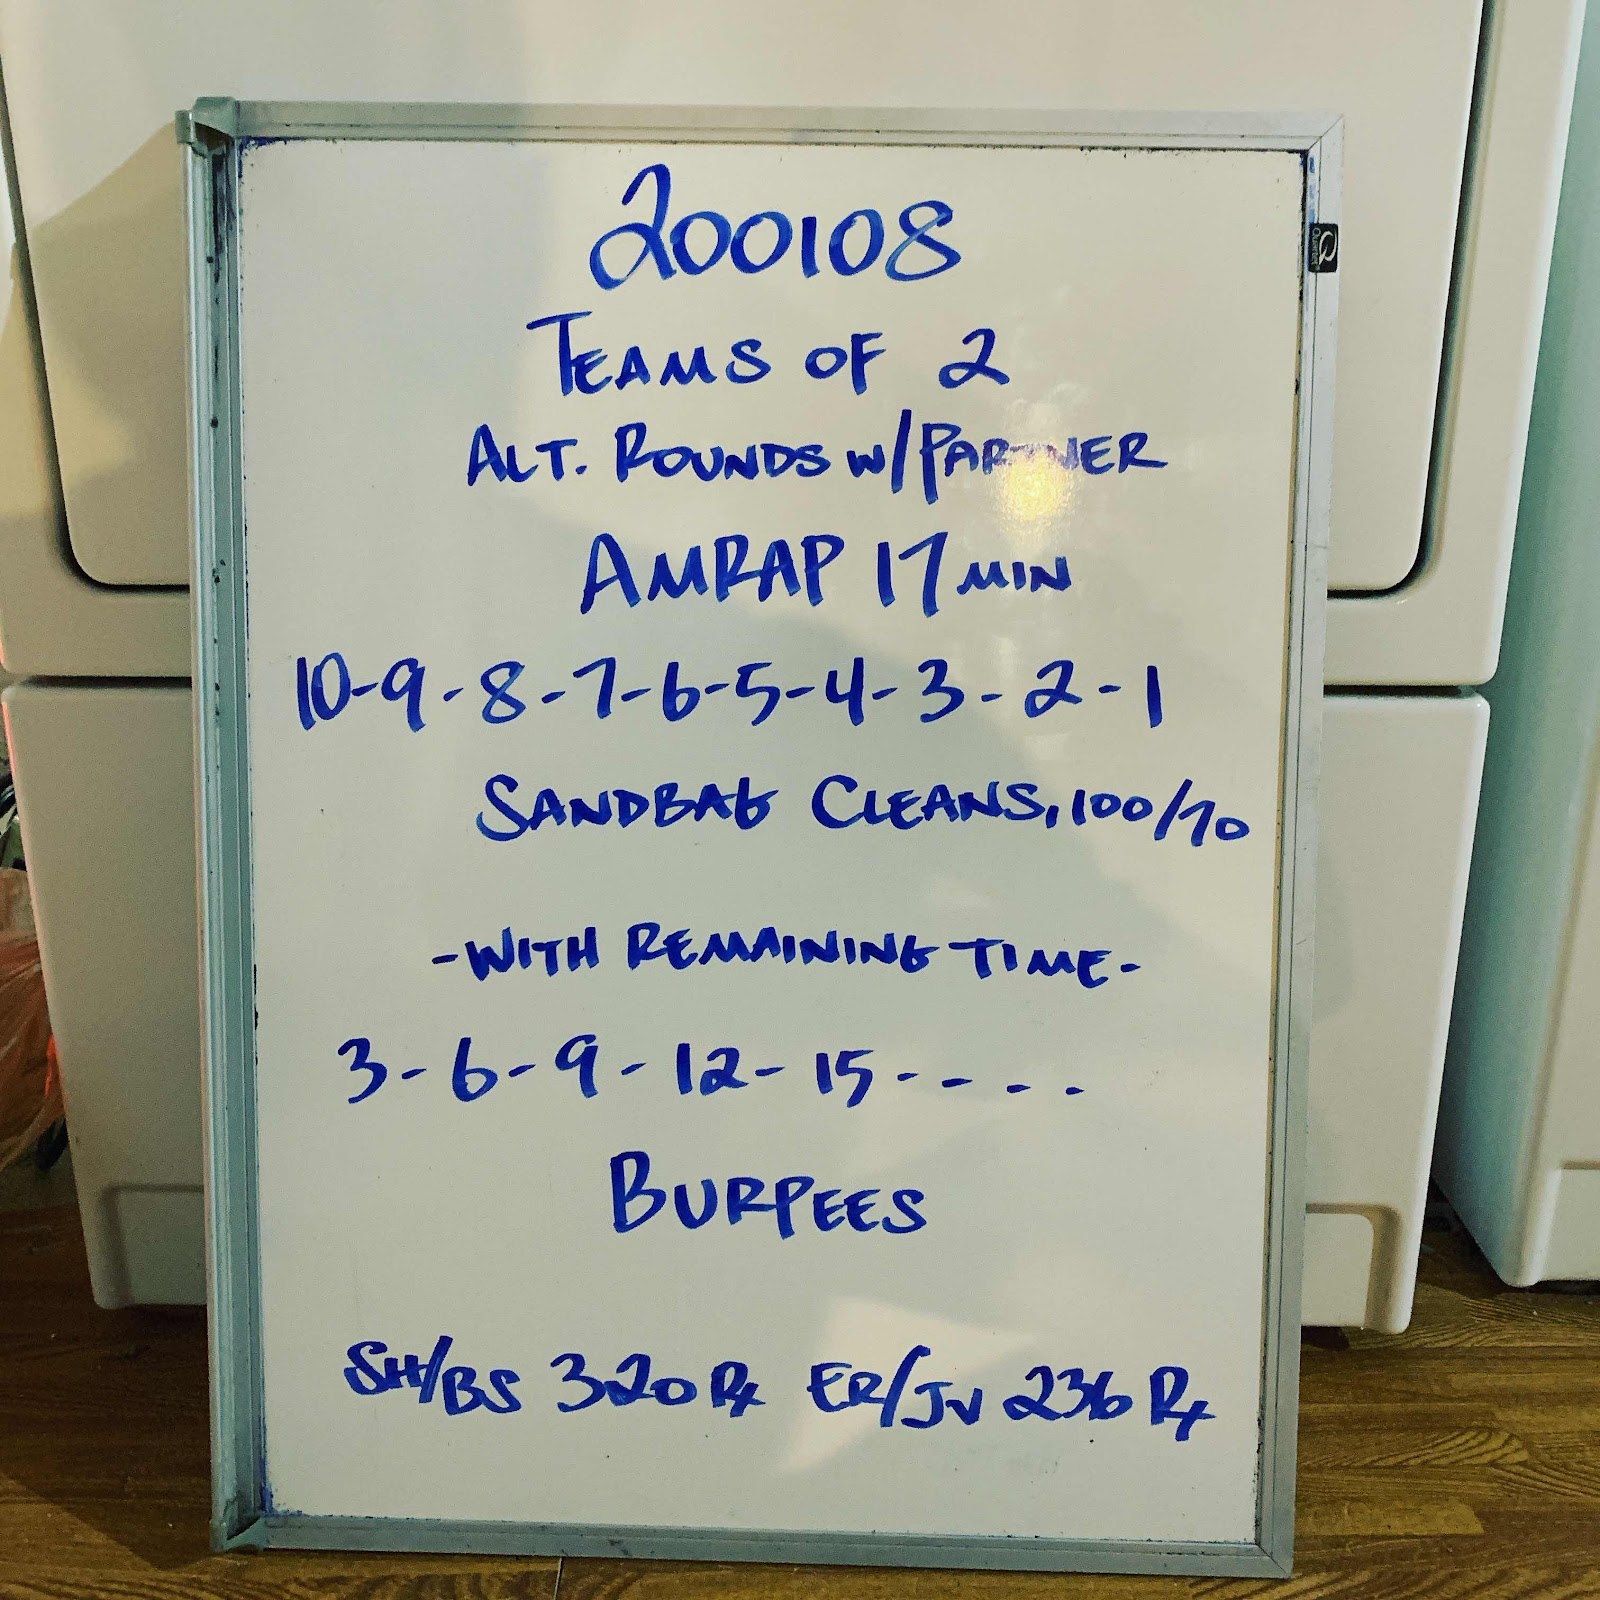 200108
TEAMS OF 2
ALT. ROUNDS W/PARTNER
AMRAP 17 MIN
10-9-8-7-6-5-4-3-2-1
SANDBAG CLEANS, 100/70
-WITH REMAINING TIME-
3-6-9-12-15----
BURPEES
SH/BS 320 Rx ER/JV 236 Rx
Quartet